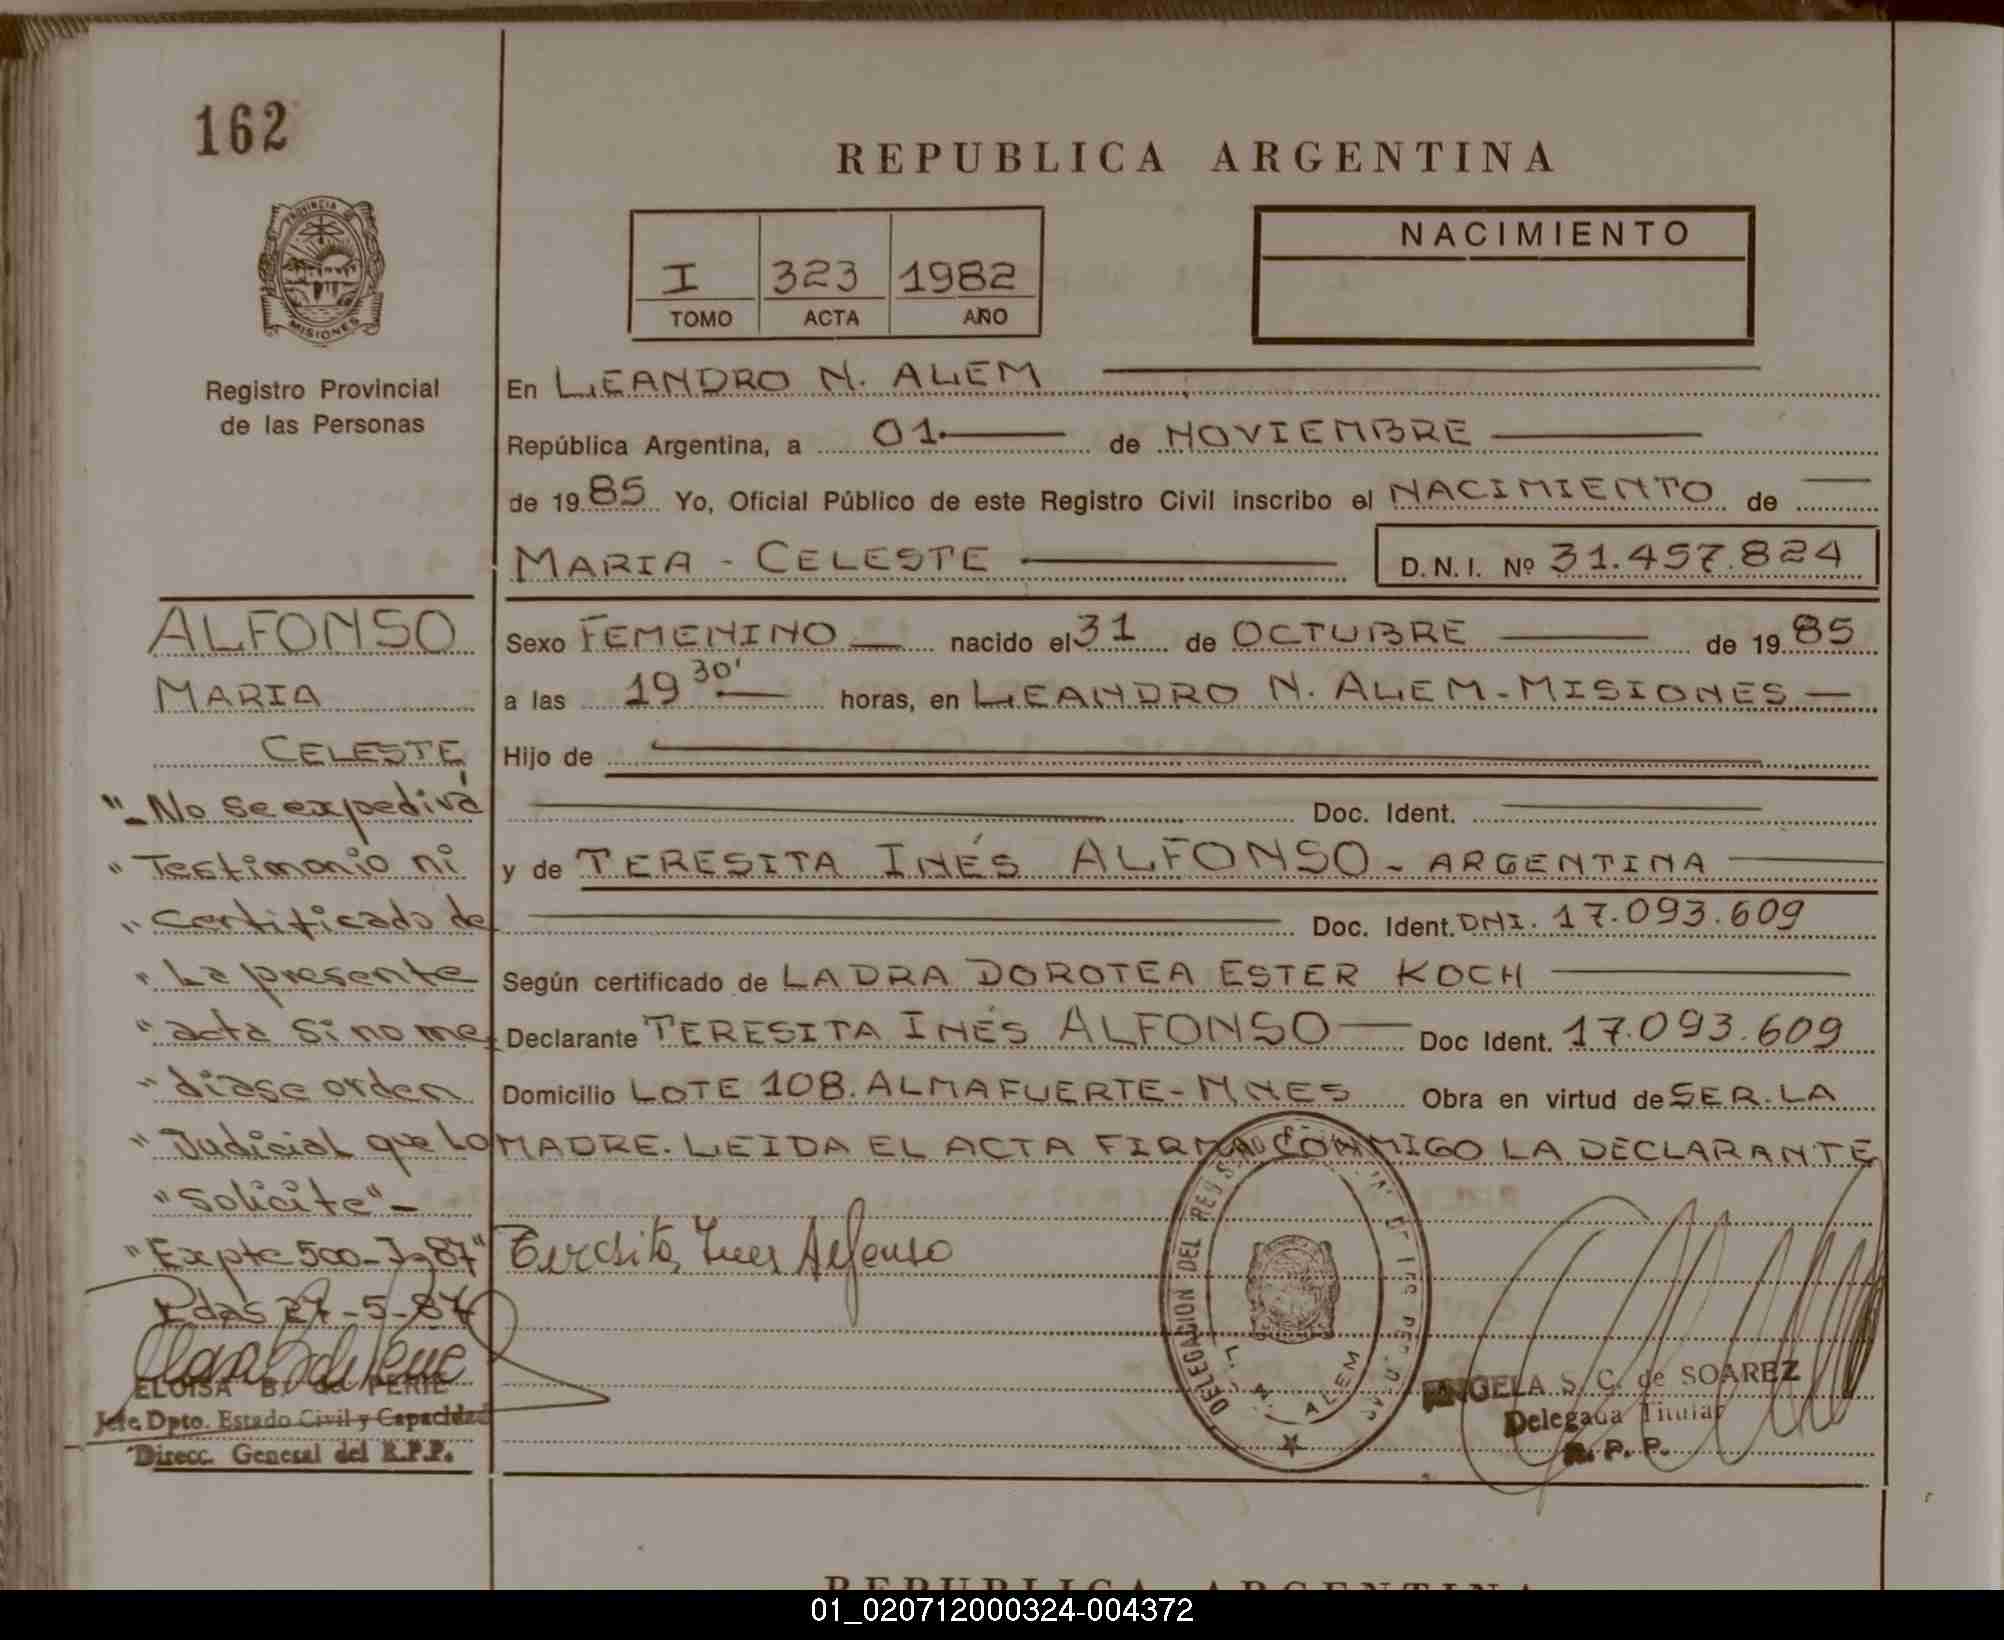 162
REPUBLICA ARGENTINA
PROVINCIA DE
MISIONES
Registro Provincial
de las Personas
NACIMIENTO
I 323 1982
TOMO ACTA AÑO
En LEANDRO N. ALEM
República Argentina, a 01 de NOVIEMBRE
de 1985 Yo, Oficial Público de este Registro Civil inscribo el NACIMIENTO de
MARIA - CELESTE D.N.I. Nº 31.457.824
Sexo FEMENINO nacido el 31 de OCTUBRE de 1985
a las 19 30' horas, en LEANDRO N. ALEM - MISIONES
Hijo de
Doc. Ident.
y de TERESITA INÉS ALFONSO - ARGENTINA
Doc. Ident. DNI. 17.093.609
Según certificado de LA DRA DOROTEA ESTER KOCH
Declarante TERESITA INÉS ALFONSO Doc Ident. 17.093.609
Domicilio LOTE 108. ALMAFUERTE - MNES Obra en virtud de SER. LA
MADRE. LEIDA EL ACTA FIRMA CONMIGO LA DECLARANTE
Teresita Ines Alfonso
DELEGACION DEL
L. N. ALEM
ANGELA S. C. de SOAREZ
Delegada Titular
R. P. P.
ALFONSO
MARIA
CELESTE
"- No se expedirá
" Testimonio ni
" Certificado de
" La presente
" acta si no me
" diase orden
" Judicial que Lo
" Solicite" -
"Expte 500-J-87"
Pdas 27-5-87
ELOISA B. de PERIE
Jefe Dpto. Estado Civil y Capacidad
Direcc. General del R.P.P.
REPUBLICA ARGENTINA
01_020712000324-004372